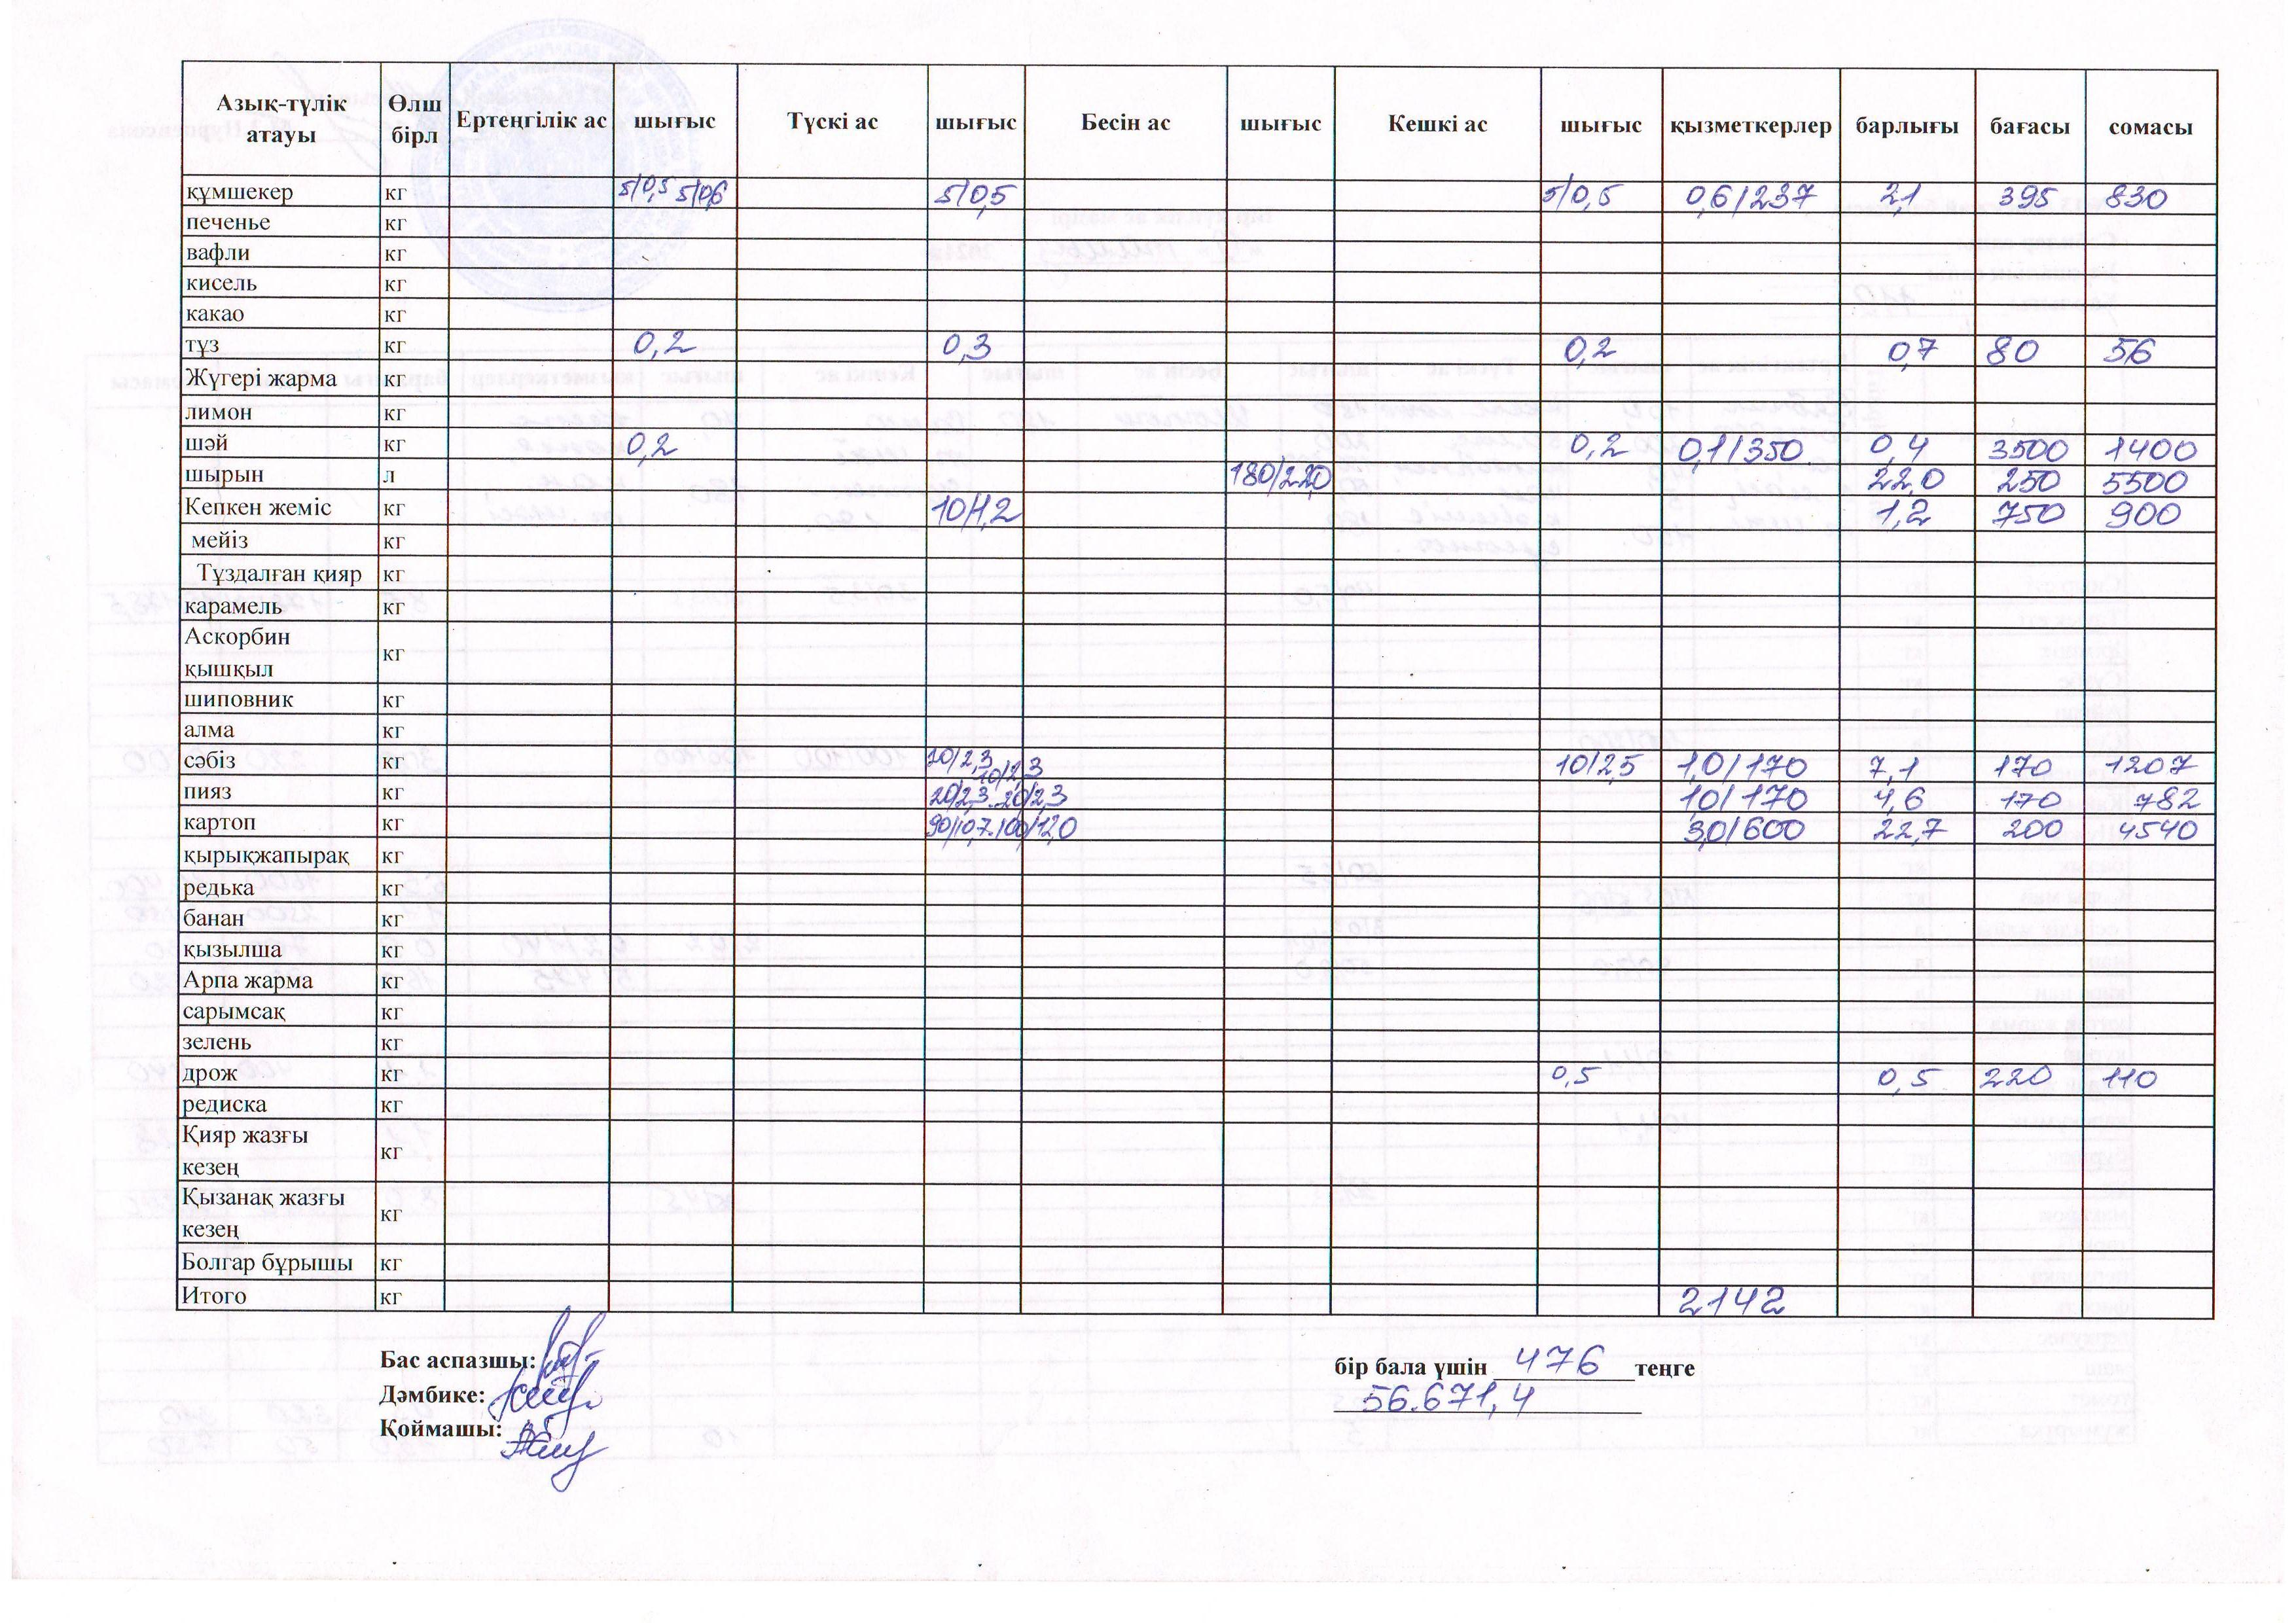 Азық-түлік атауы Өлш бірл Ертеңгілік ас шығыс Түскі ас шығыс Бесін ас шығыс Кешкі ас шығыс қызметкерлер барлығы бағасы сомасы
құмшекер кг 5/0,5 5/0,6 5/0,5 5/0,5 0,6/237 2,1 395 830
печенье кг
вафли кг
кисель кг
какао кг
тұз кг 0,2 0,3 0,2 0,7 80 56
Жүгері жарма кг
лимон кг
шәй кг 0,2 0,2 0,1/350 0,4 3500 1400
шырын л 180/22,0 22,0 250 5500
Кепкен жеміс кг 10/1,2 1,2 750 900
мейіз кг
Тұздалған қияр кг
карамель кг
Аскорбин қышқыл кг
шиповник кг
алма кг
сәбіз кг 10/2,3 10/2,3 10/2,5 1,0/170 7,1 170 1207
пияз кг 20/2,3. 20/2,3 10/170 4,6 170 782
картоп кг 90/10,7. 100/12,0 3,0/600 22,7 200 4540
қырықжапырақ кг
редька кг
банан кг
қызылша кг
Арпа жарма кг
сарымсақ кг
зелень кг
дрож кг 0,5 0,5 220 110
редиска кг
Қияр жазғы кезең кг
Қызанақ жазғы кезең кг
Болгар бұрышы кг
Итого кг 2142
Бас аспазшы:
бір бала үшін 476 теңге
Дәмбике:
56.671,4
Қоймашы: